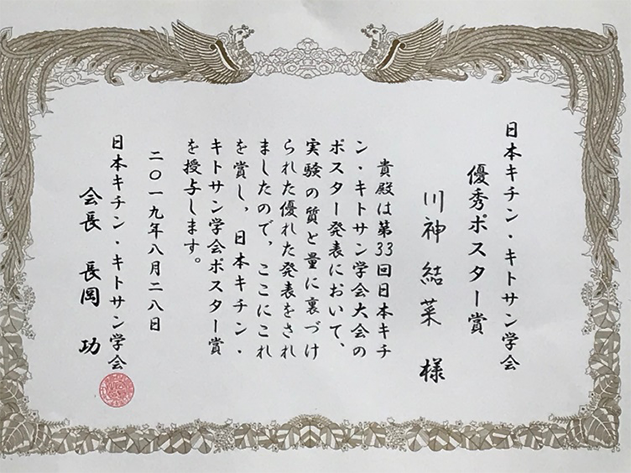 日本キチン・キトサン学会
優秀ポスター賞
川神 結菜 様
貴殿は第33回日本キチ
ン・キトサン学会大会の
ポスター発表において、
実験の質と量に裏づけ
られた優れた発表をされ
ましたので、ここにこれ
を賞し、日本キチン・
キトサン学会ポスター賞
を授与します。
二〇一九年八月二八日
日本キチン・キトサン学会
会長 長岡 功